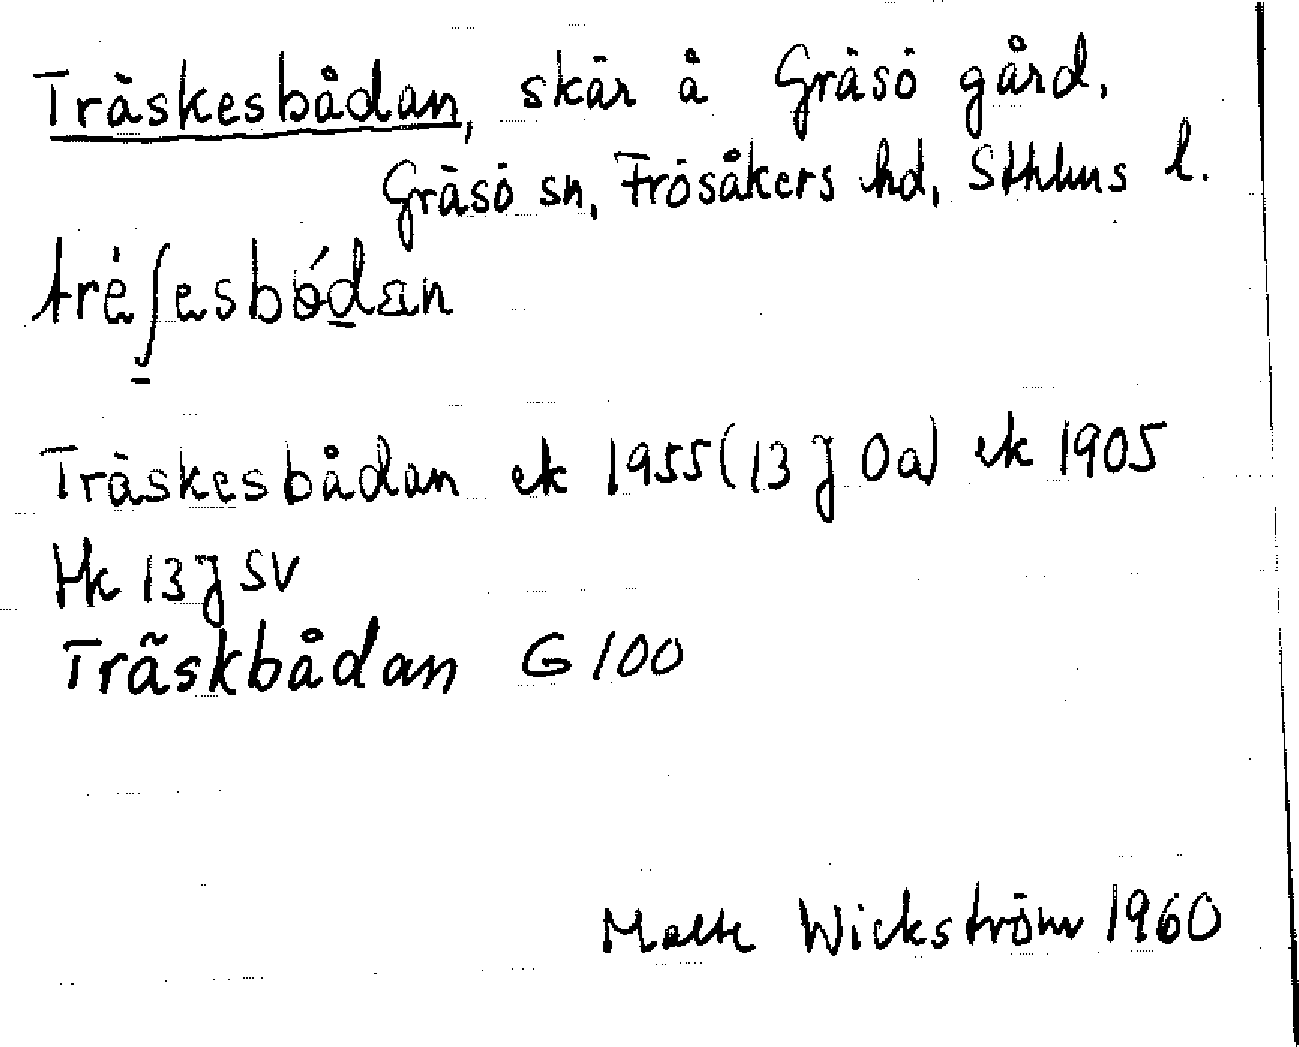 Träskesbådan, skär å Gräsö gård,
Gräsö sn, Frösåkers hd, Sthlms l.
Träskesbådan ek 1955 (13 J Oa) ek 1905
Hk 13 J SV
Träskbådan G 100
Malte Wickström 1960